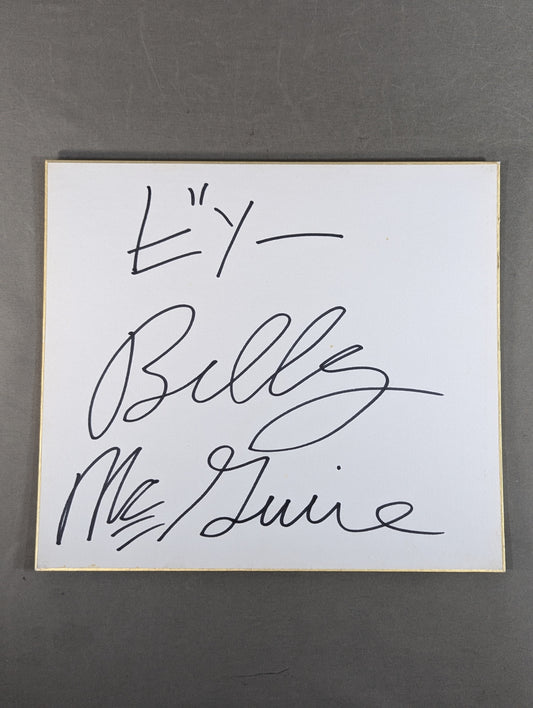 ビリー
Billy
McGuire